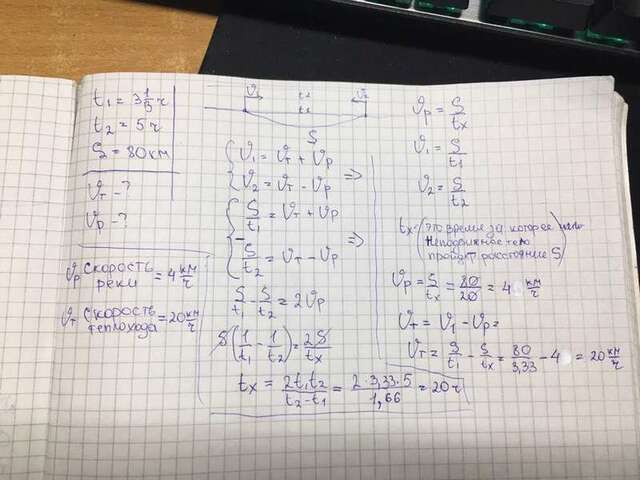 t₁ = 3 1/3 ч
t₂ = 5 ч
S = 80 км
𝒱т - ?
𝒱р - ?
𝒱р скорость реки = 4 км/ч
𝒱т скорость теплохода = 20 км/ч
S
{ 𝒱₁ = 𝒱т + 𝒱р
{ 𝒱₂ = 𝒱т - 𝒱р =>
{ S/t₁ = 𝒱т + 𝒱р
{ S/t₂ = 𝒱т - 𝒱р =>
S/t₁ - S/t₂ = 2𝒱р
S(1/t₁ - 1/t₂) = 2S/tх
tх = 2t₁t₂/(t₂ - t₁) = 2 · 3,33 · 5/1,66 = 20 ч
𝒱р = S/tх
𝒱₁ = S/t₁
𝒱₂ = S/t₂
tх - (это время за которое
неподвижное тело
пройдёт расстояние S)
𝒱р = S/tх = 80/20 = 4 км/ч
𝒱т = 𝒱₁ - 𝒱р =
𝒱т = S/t₁ - S/tх = 80/3,33 - 4 = 20 км/ч